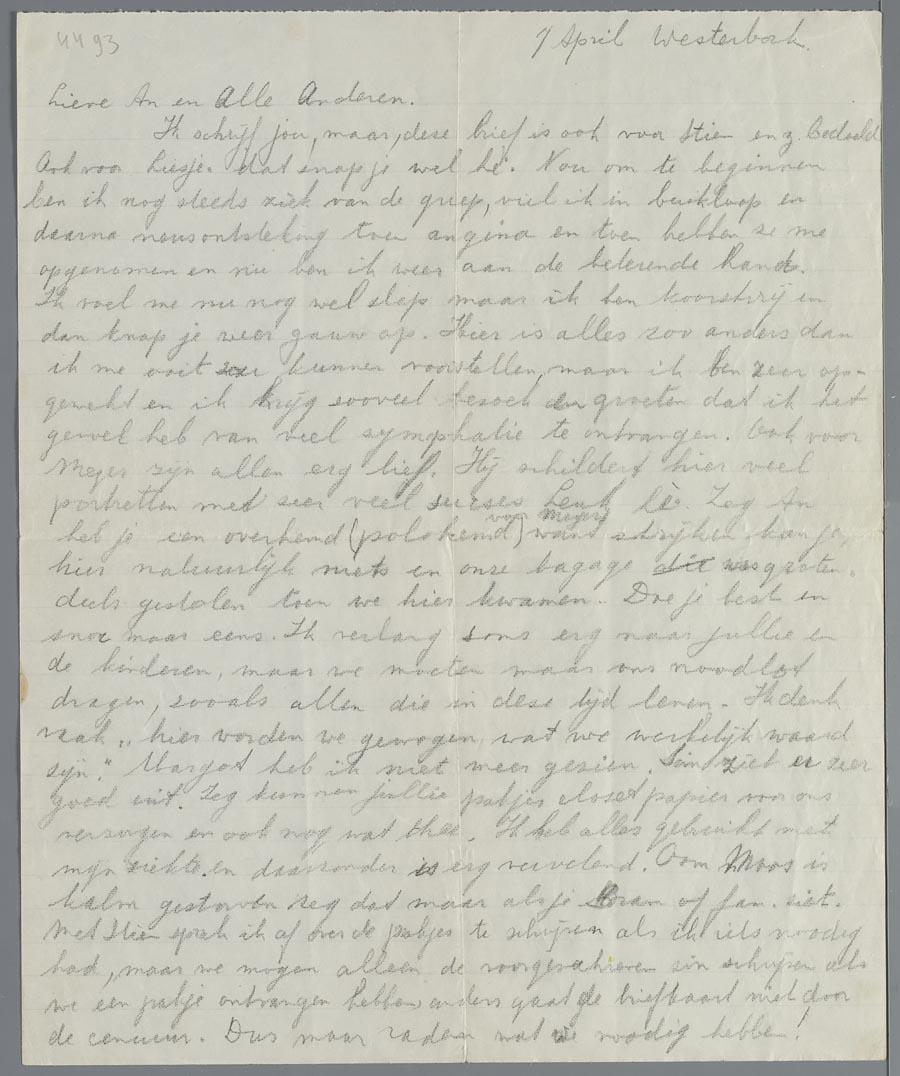 4493
7 April Westerbork.
Lieve An en Alle Anderen.
Ik schrijf jou, maar, deze brief is ook voor Stien en z. bedoeld
Ook voor Liesje. dat snap je wel hè. Nou om te beginnen
ben ik nog steeds ziek van de griep, viel ik in buikloop en
daarna neusontsteking toen angina en toen hebben ze me
opgenomen en nu ben ik weer aan de beterende hand.
Ik voel me nu nog wel slap maar ik ben koortsvrij en
dan knap je weer gauw op. Hier is alles zoo anders dan
ik me ooit kunnen voorstellen, maar ik ben zeer op-
gewekt en ik krijg zooveel bezoek en groeten dat ik het
gevoel heb van veel symphatie te ontvangen. Ook voor
Meijer zijn allen erg lief. Hij schildert hier veel
portretten met zeer veel succes Leuk hè. Zeg An
heb je een overhemd (polohemd) voor Meijer want strijken kan je
hier natuurlijk niets en onze bagage die is grooten-
deels gestolen toen we hier kwamen. Doe je best en
snor maar eens. Ik verlang soms erg naar jullie en
de kinderen, maar we moeten maar ons noodlot
dragen, zooals allen die in deze tijd leven. Ik denk
vaak „hier worden we gewogen wat we werkelijk waard
zijn." Margot heb ik niet meer gezien. Sim ziet er zeer
goed uit. Zeg kunnen jullie pakjes closet papier voor ons
verzorgen en ook nog wat thee. Ik heb alles gebruikt met
mijn ziekte. en daarzonder is erg vervelend. Oom Moos is
kalm gestorven zeg dat maar als je Bram of Jan. ziet.
Met Stien sprak ik af over de pakjes te schrijven als ik iets noodig
had, maar we mogen alleen de voorgeschreven zin schrijven als
we een pakje ontvangen hebben, anders gaat de briefkaart niet door
de censuur. Dus maar raden wat we noodig hebben!